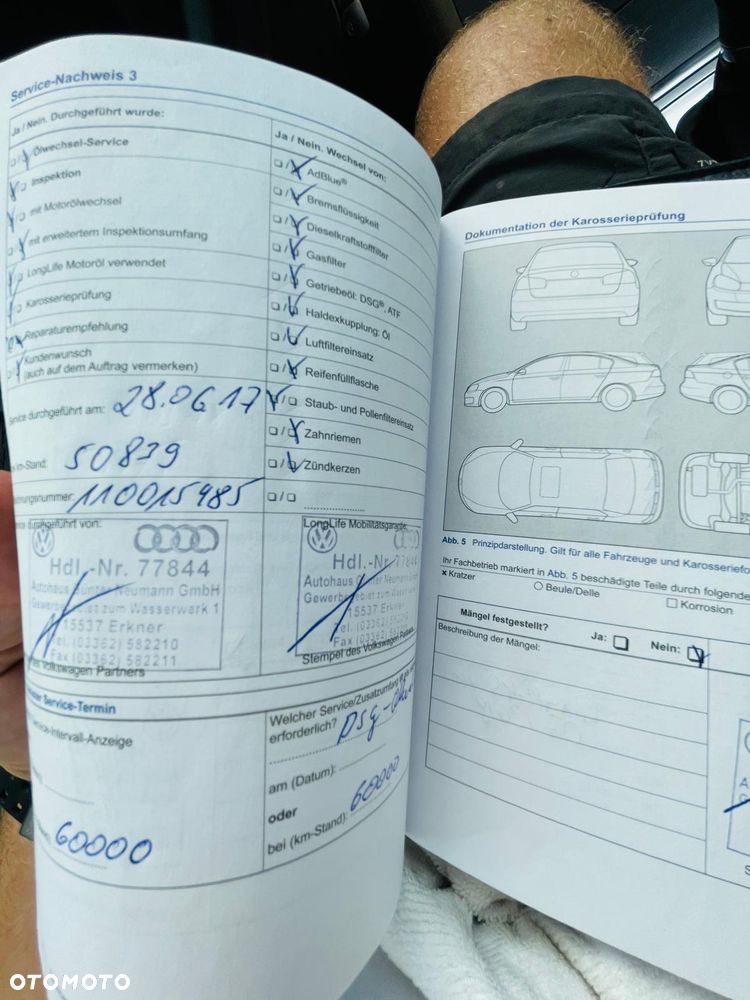 Service-Nachweis 3
Ja / Nein. Durchgeführt wurde:
Ölwechsel-Service
Inspektion
mit Motorölwechsel
mit erweitertem Inspektionsumfang
LongLife Motoröl verwendet
Karosserieprüfung
Reparaturempfehlung
Kundenwunsch
(auch auf dem Auftrag vermerken)
durchgeführt am: 28.06.17
km-Stand: 50839
110015985
durchgeführt von:
Hdl.-Nr. 77844
Autohaus Günter Neumann GmbH
zum Wasserwerk 1
15537 Erkner
Tel. (03362) 582210
Fax (03362) 582211
Volkswagen Partners
Service-Termin
Service-Intervall-Anzeige
60000
Ja / Nein. Wechsel von:
AdBlue®
Bremsflüssigkeit
Dieselkraftstofffilter
Gasfilter
Getriebeöl: DSG®, ATF
Haldexkupplung: Öl
Luftfiltereinsatz
Reifenfüllflasche
Staub- und Pollenfiltereinsatz
Zahnriemen
Zündkerzen
LongLife Mobilitätsgarantie
Hdl.-Nr.
Autohaus Günter Neumann GmbH
15537 Erkner
Tel. (03362)
Fax (03362)
Stempel des Volkswagen
Welcher Service/Zusatzumfang
erforderlich? DSG-
am (Datum):
oder
bei (km-Stand): 60000
Dokumentation der Karosserieprüfung
Abb. 5 Prinzipdarstellung. Gilt für alle Fahrzeuge und
Ihr Fachbetrieb markiert in Abb. 5 beschädigte Teile durch
x Kratzer
Beule/Delle
Korrosion
Mängel festgestellt? Ja: Nein:
Beschreibung der Mängel:
OTOMOTO